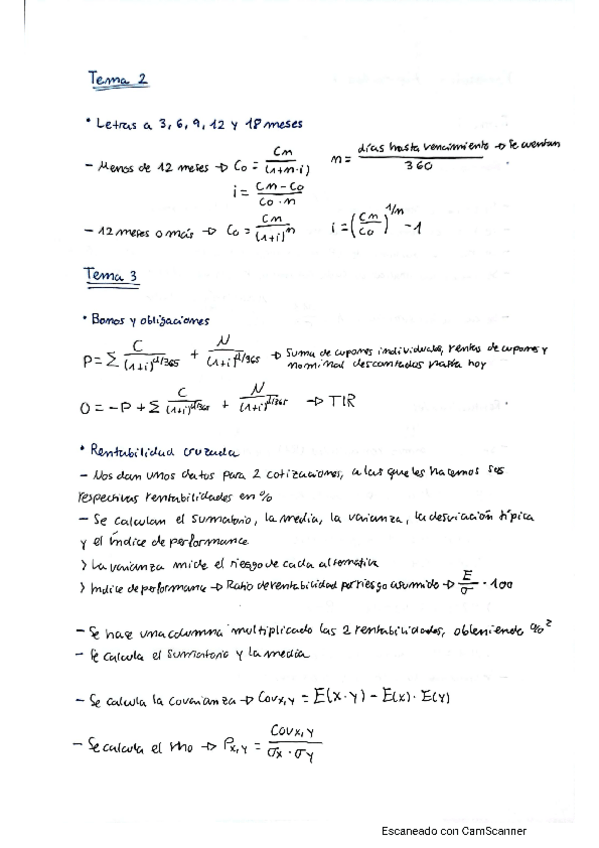 Tema 2
• Letras a 3, 6, 9, 12 y 18 meses
- Menos de 12 meses → Co = Cm / (1+n·i) n = días hasta vencimiento → Se cuentan / 360
i = Cm - Co / Co · n
- 12 meses o más → Co = Cm / (1+i)^n i = (Cm / Co)^1/n - 1
Tema 3
• Bonos y obligaciones
P = Σ C / (1+i)^d/365 + N / (1+i)^d/365 → Suma de cupones individuales, rentas de cupones y
nominal descontados hasta hoy
0 = -P + Σ C / (1+i)^d/365 + N / (1+i)^d/365 → TIR
• Rentabilidad cruzada
- Nos dan unos datos para 2 cotizaciones, a las que les hacemos sus
respectivas rentabilidades en %
- Se calculan el sumatorio, la media, la varianza, la desviación típica
y el índice de performance
> La varianza mide el riesgo de cada alternativa
> Indice de performance → Ratio de rentabilidad por riesgo asumido → E / σ · 100
- Se hace una columna multiplicado las 2 rentabilidades, obteniendo %²
- Se calcula el sumatorio y la media
- Se calcula la covarianza → Covx,y = E(x·y) - E(x) · E(y)
- Se calcula el rho → Px,y = Covx,y / σx · σy
Escaneado con CamScanner